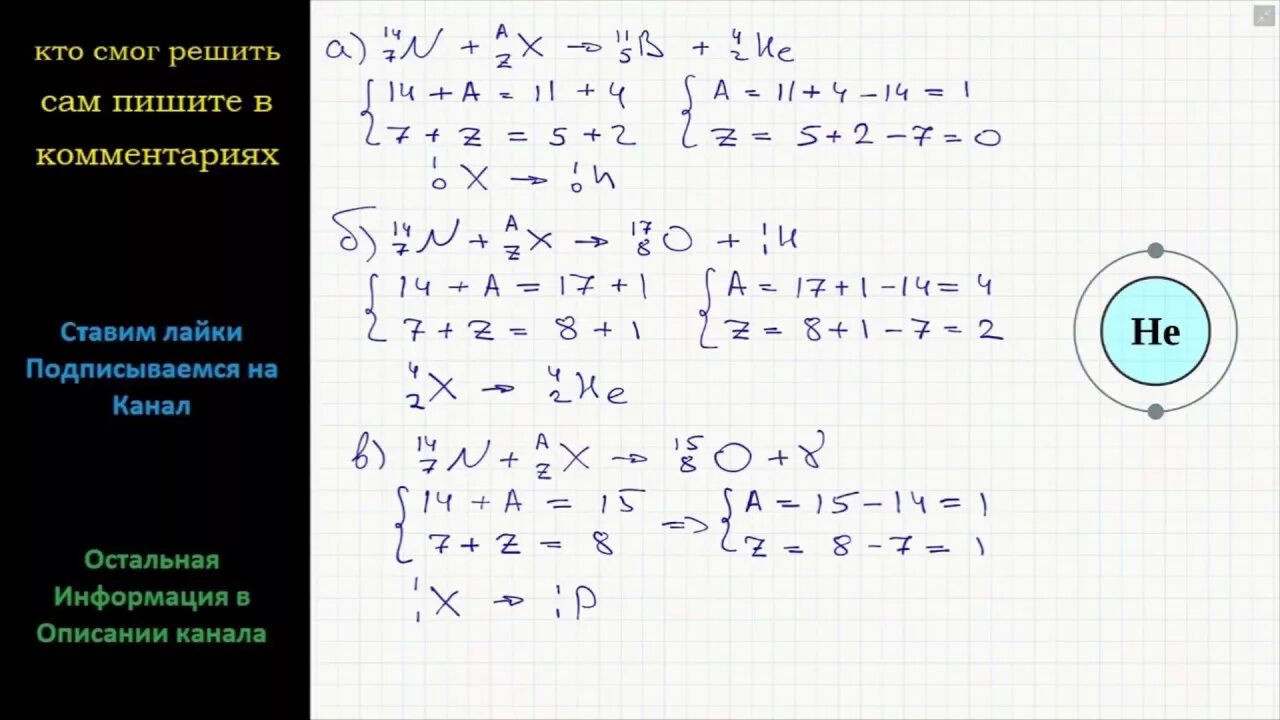 кто смог решить
сам пишите в
комментариях
Ставим лайки
Подписываемся на
Канал
Остальная
Информация в
Описании канала
а) ¹⁴₇N + ᴬ_Z X → ¹¹₅B + ⁴₂He
{ 14 + A = 11 + 4 { A = 11 + 4 - 14 = 1
{ 7 + Z = 5 + 2 { Z = 5 + 2 - 7 = 0
¹₀X → ¹₀n
б) ¹⁴₇N + ᴬ_Z X → ¹⁷₈O + ¹₁H
{ 14 + A = 17 + 1 { A = 17 + 1 - 14 = 4
{ 7 + Z = 8 + 1 { Z = 8 + 1 - 7 = 2
⁴₂X → ⁴₂He
в) ¹⁴₇N + ᴬ_Z X → ¹⁵₈O + γ
{ 14 + A = 15 => { A = 15 - 14 = 1
{ 7 + Z = 8 { Z = 8 - 7 = 1
¹₁X → ¹₁p
He